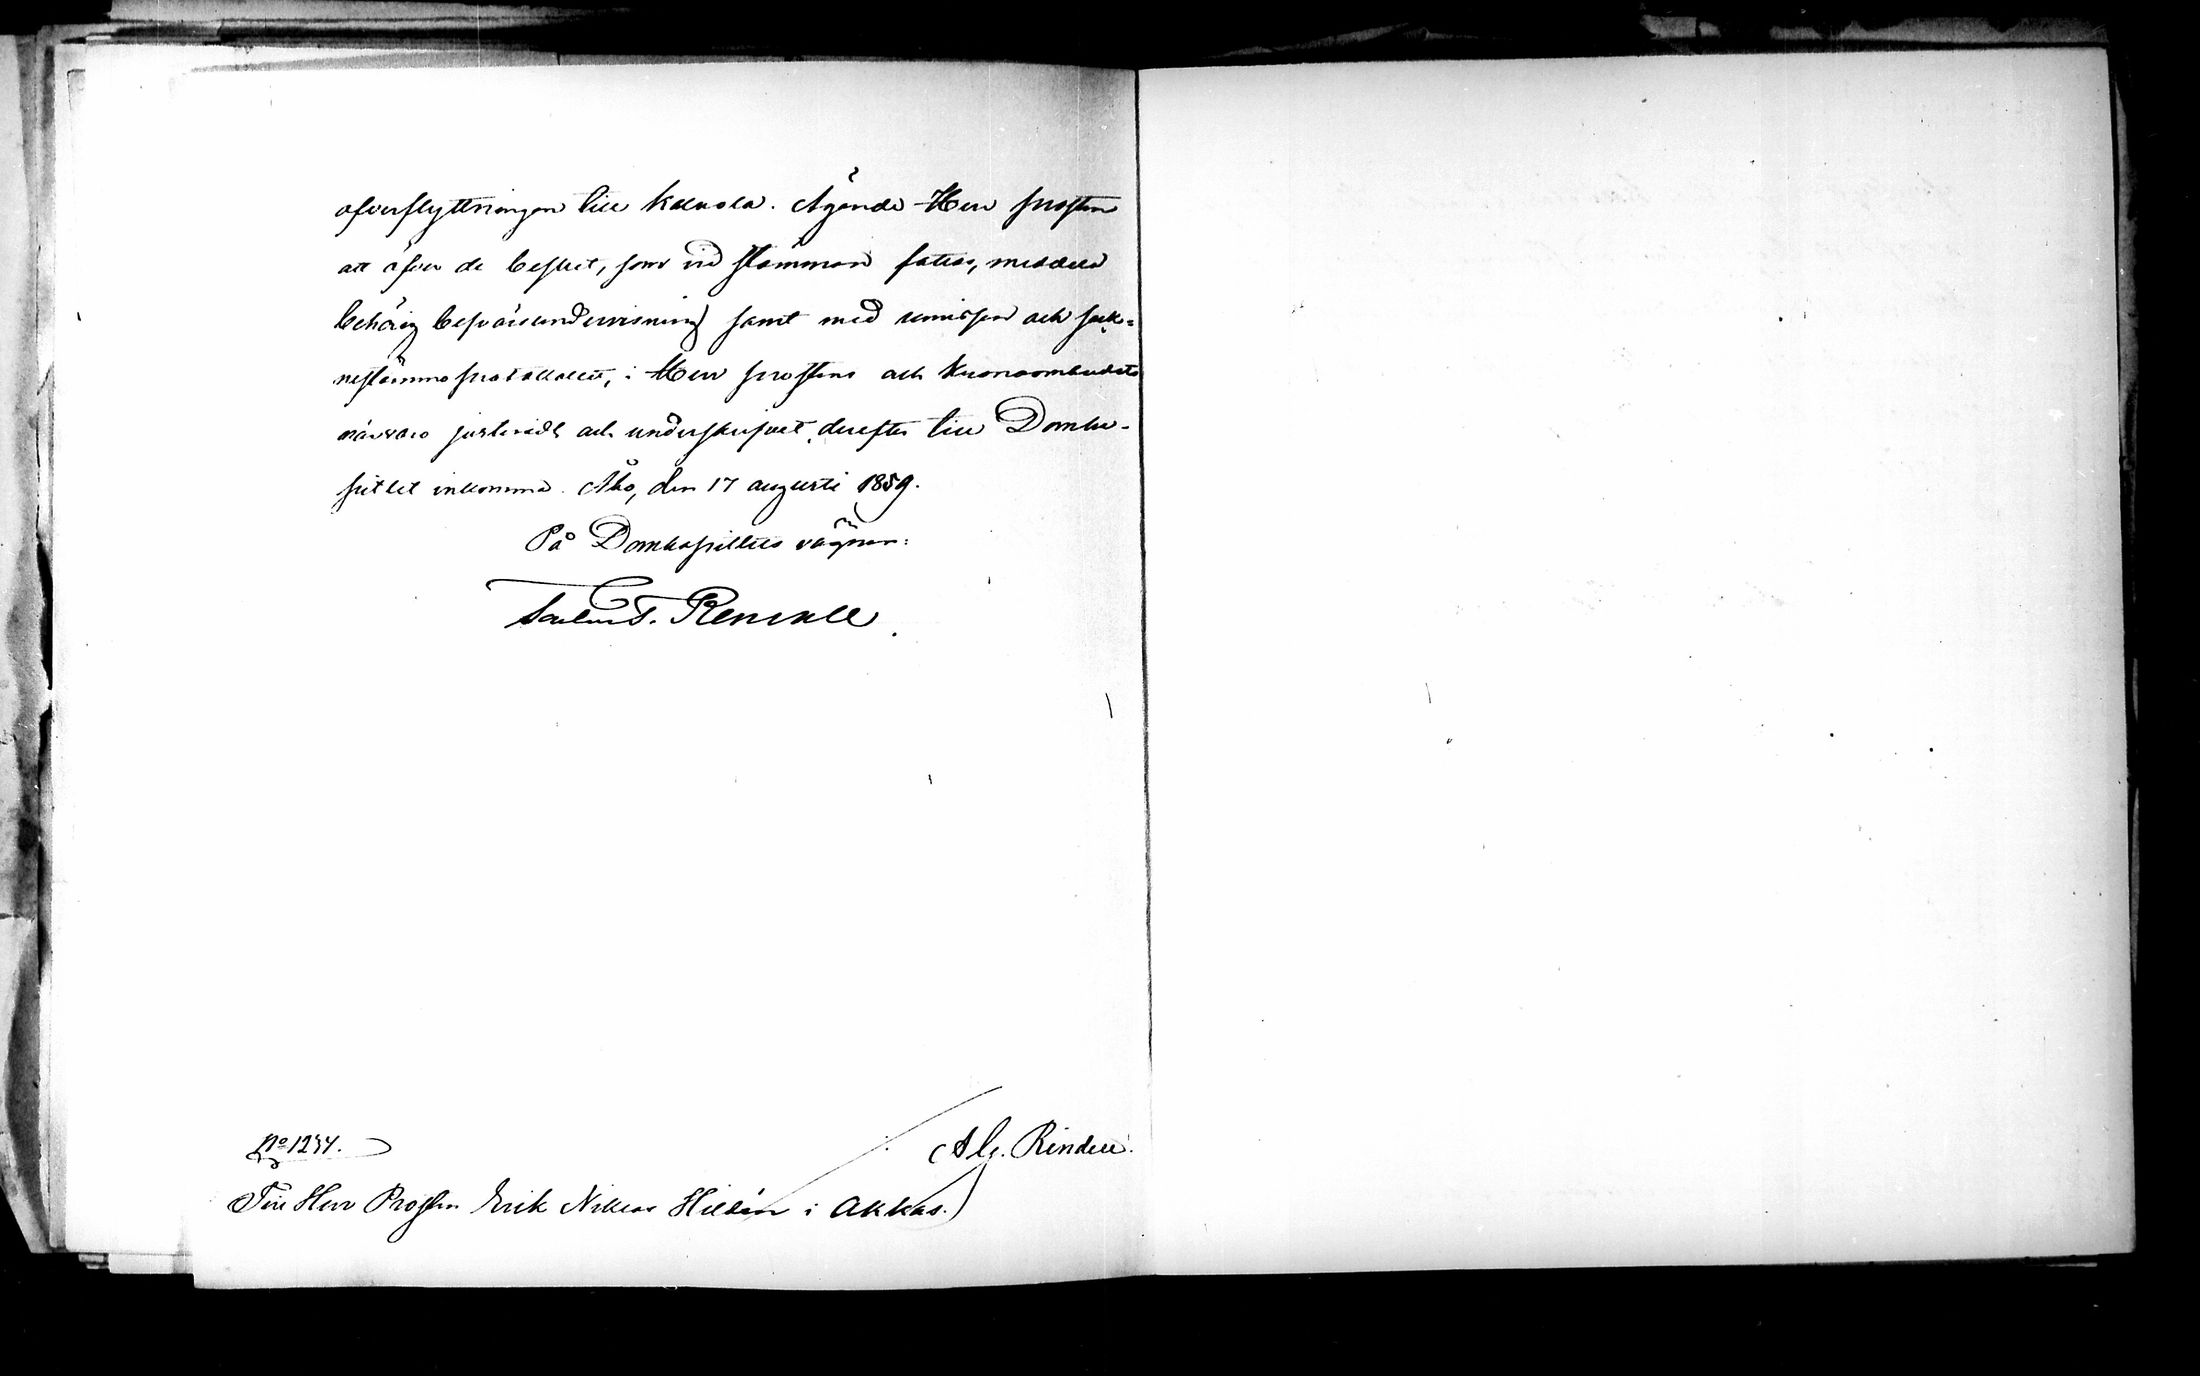 öfverflyttningen till Kalvola. Ägande Herr Prosten
att öfver de beslut, som vid stämman fattas, meddela
behörig besvärsundervisning samt med remissen och sock-
nestämmoprotokollet, i Herr Prostens och Kronoombudets
närvaro justeradt och underskrifvet, derefter till Domka-
pitlet inkomma. Åbo, den 17 augusti 1859.
På Domkapitlets vägnar:
T. Renvall
Alg. Rindell.
No 1234.
Till Herr Prosten Erik Niklas Hildén i Akkas.